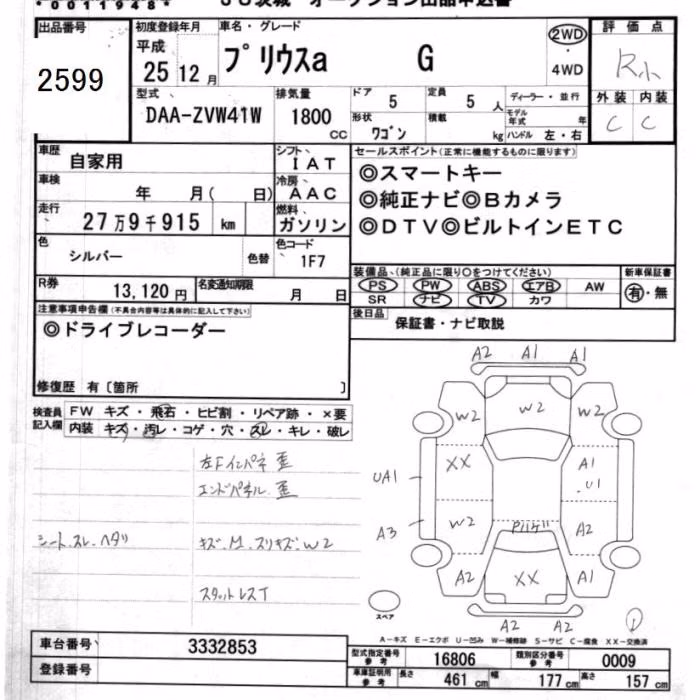 *0011948*
JU茨城 オークション出品申込書
出品番号
2599
初度登録年月
平成
25 12 月
車名・グレード
プリウスα G
2WD
・
4WD
評価点
R小
外装 内装
C C
型式
DAA-ZVW41W
排気量
1800
CC
ドア 5
定員 5 人
ディーラー・並行
形状
ワゴン
積載
kg
モデル年式 年
ハンドル 左・右
車歴
自家用
シフト
IAT
車検
年 月( 日)
冷房
AAC
走行
27万9千915 km
燃料
ガソリン
色
シルバー
色替
色コード
1F7
R券
13,120 円
名変通知期限
月 日
セールスポイント(正常に機能するものに限ります)
◎スマートキー
◎純正ナビ◎Bカメラ
◎DTV◎ビルトインETC
装備品、(純正品に限り○をつけてください)
PS PW ABS エアB AW
SR ナビ TV カワ
新車保証書
有・無
後日品
保証書・ナビ取説
注意事項申告欄(不具合内容等は具体的に記入して下さい)
◎ドライブレコーダー
修復歴 有〔箇所 〕
検査員記入欄
FW キズ・飛石・ヒビ割・リペア跡・×要
内装 キズ・汚レ・コゲ・穴・スレ・キレ・破レ
左Fインパネ 歪
エンドパネル 歪
シートスレ ヘタリ
キズ.M.スリキズ.W2
スタットレスT
A2 A1 A1
W2 W2 W2
UA1 XX A1
.U1
A3 W2 A2
A2 XX A1
A2 A2
スペア
A-キズ E-エクボ U-凹み W-補修跡 S-サビ C-腐食 XX-交換済
車台番号
3332853
登録番号
型式指定番号
参考
16806
類別区分番号
参考
0009
車庫証明用
参考
長さ 461 cm
幅 177 cm
高さ 157 cm